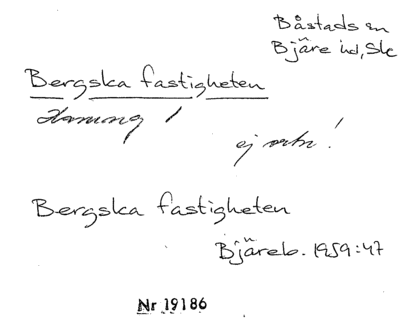 Båstads sn
Bjäre hd, Sk
Bergska fastigheten
ej !
Bergska fastigheten
Bjäreb. 1959:47
Nr 19186